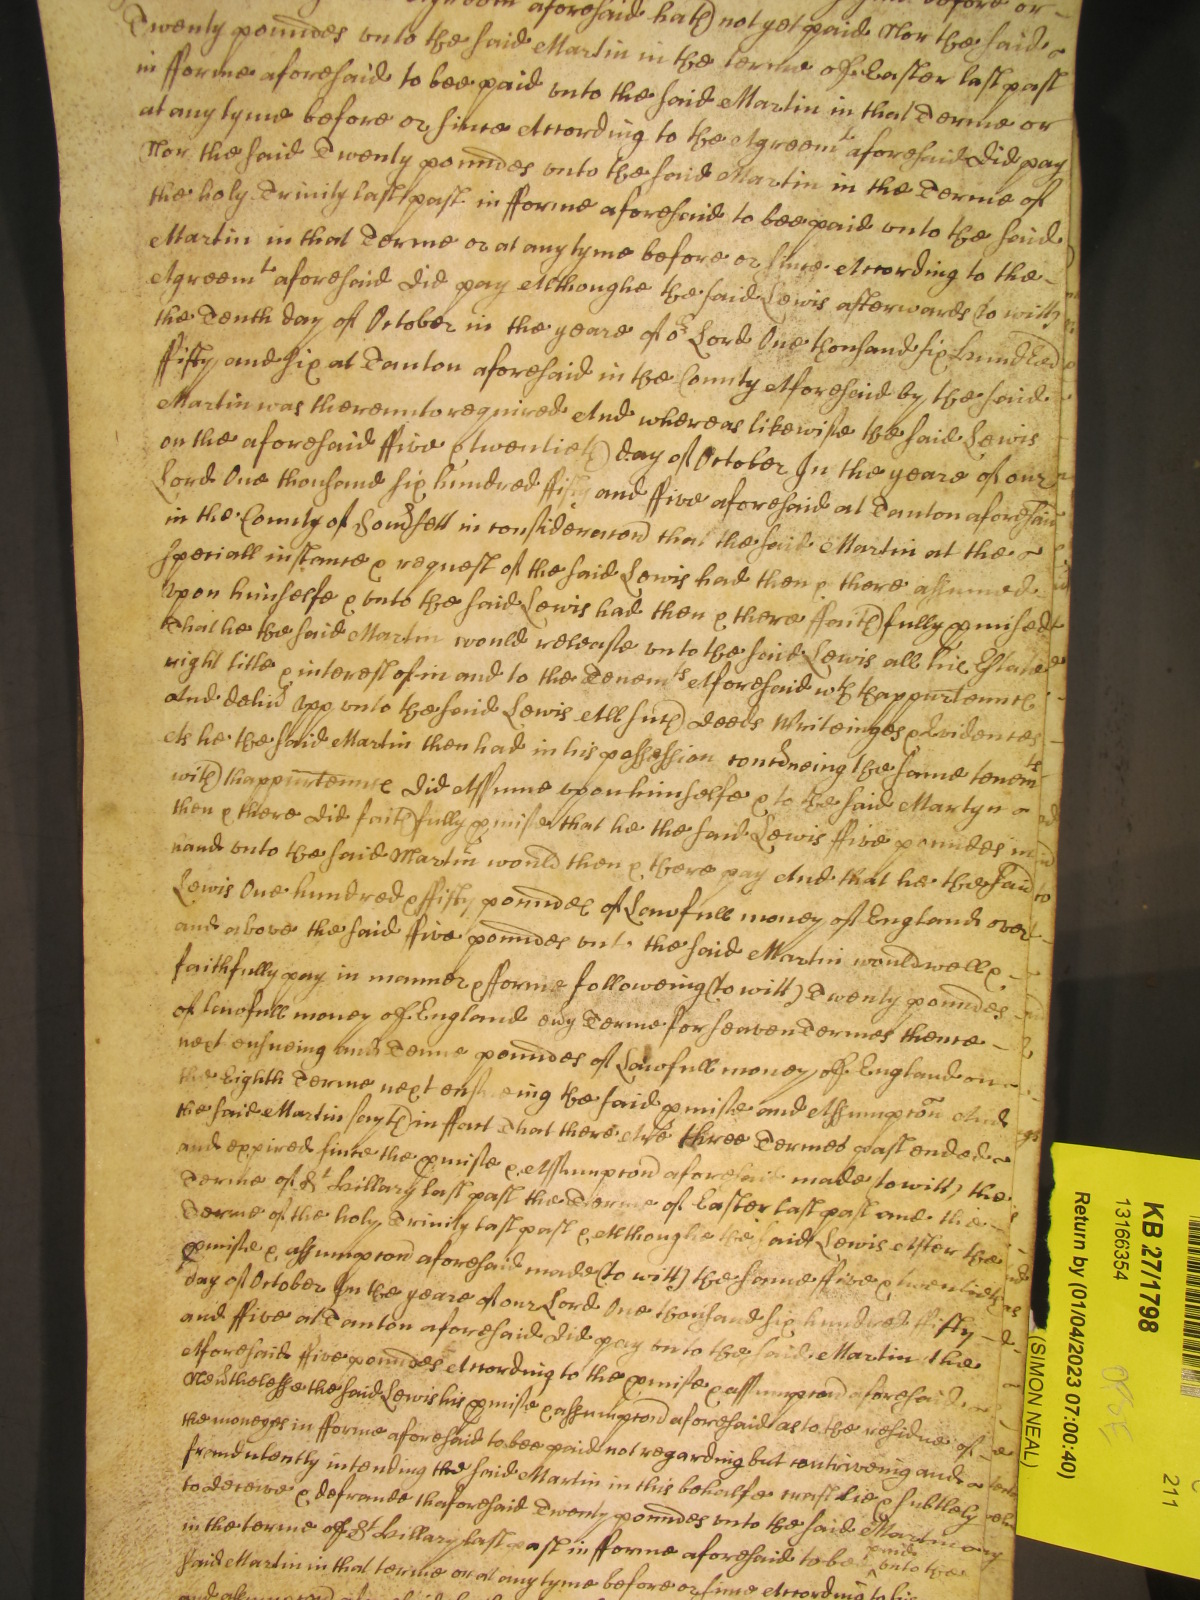 Agreem aforesaid hath not yet paid Nor the said
Twenty poundes unto the said Martin in the terme of Easter last past
in fforme aforesaid to bee paid unto the said Martin in that Terme or
at any tyme before or since According to the Agreemt aforesaid did pay
Nor the said Twenty poundes unto the said Martin in the Terme of
the holy Trinity last past in fforme aforesaid to bee paid unto the said
Martin in that Terme or at any tyme before or since According to the
Agreemt aforesaid did pay Althoughe the said Lewis afterwards (to witt)
the Tenth day of October in the yeare of or Lord One thousand six hundred
ffifty and six at Tanton aforesaid in the County Aforesaid by the said
Martin was thereunto required And whereas likewise the said Lewis
on the aforesaid ffive & twentieth day of October In the yeare of our
Lord One thousand six hundred ffifty and ffive aforesaid at Tanton aforesaid
in the County of Somsett in consideracon that the said Martin at the
speciall instance & request of the said Lewis had then & there assumed
upon himselfe & unto the said Lewis had then & there ffaithfully pmised
That he the said Martin would release unto the said Lewis all his Estate
right title & interest of in and to the Tenemts Aforesaid wth thappurtennce
And delivd upp unto the said Lewis All such deeds Writeinges & Evidences
As he the said Martin then had in his possession concrneing the same tenemts
with thappurtennce did Assume upon himselfe & to the said Martyn
then & there did faithfully pmise that he the said Lewis ffive poundes in
hand unto the said Martin would then & there pay And that he the said
Lewis One hundred & ffifty poundes of Lawfull money of England over
and above the said ffive poundes unto the said Martin would well &
faithfully pay in manner & fforme followeing (to witt) Twenty poundes
of lawfull money of England evy Terme for seaven Termes thence
next ensueing and Tenne poundes of Lawfull money of England on
the Eighth Terme next ensueing the said pmise and Assumpcon And
the said Martin sayth in ffact That there Are three Termes past ended
and expired since the pmise & Assumpcon aforesaid made to witt) the
Terme of St Hillary last past the Terme of Easter last past and the
Terme of the holy Trinity last past & Althoughe the said Lewis After the
pmise & assumpcon aforesaid made (to witt) the same ffive & twentieth
day of October In the yeare of our Lord One thousand six hundred ffifty
and ffive at Tanton aforesaid did pay unto the said Martin the
Aforesaid ffive poundes According to the pmise & assumpcon aforesaid
Nevrthelesse the said Lewis his pmise & assumpcon aforesaid as to the residue of
the moneyes in fforme aforesaid to bee paid not regarding but contriveing and
fraudulently intending the said Martin in this behalfe craftilie & subtlely
to deceive & defraude thaforesaid Twenty poundes unto the said Martin
in the terme of St Hillary last past in fforme aforesaid to bee paid unto the
said Martin in that terme or at any tyme before or since According to his
KB 27/1798
13166354
Return by (01/04/2023 07:00:40)
(SIMON NEAL)
211